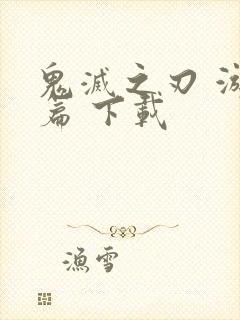 鬼滅之刃
篇 下載
漁雪